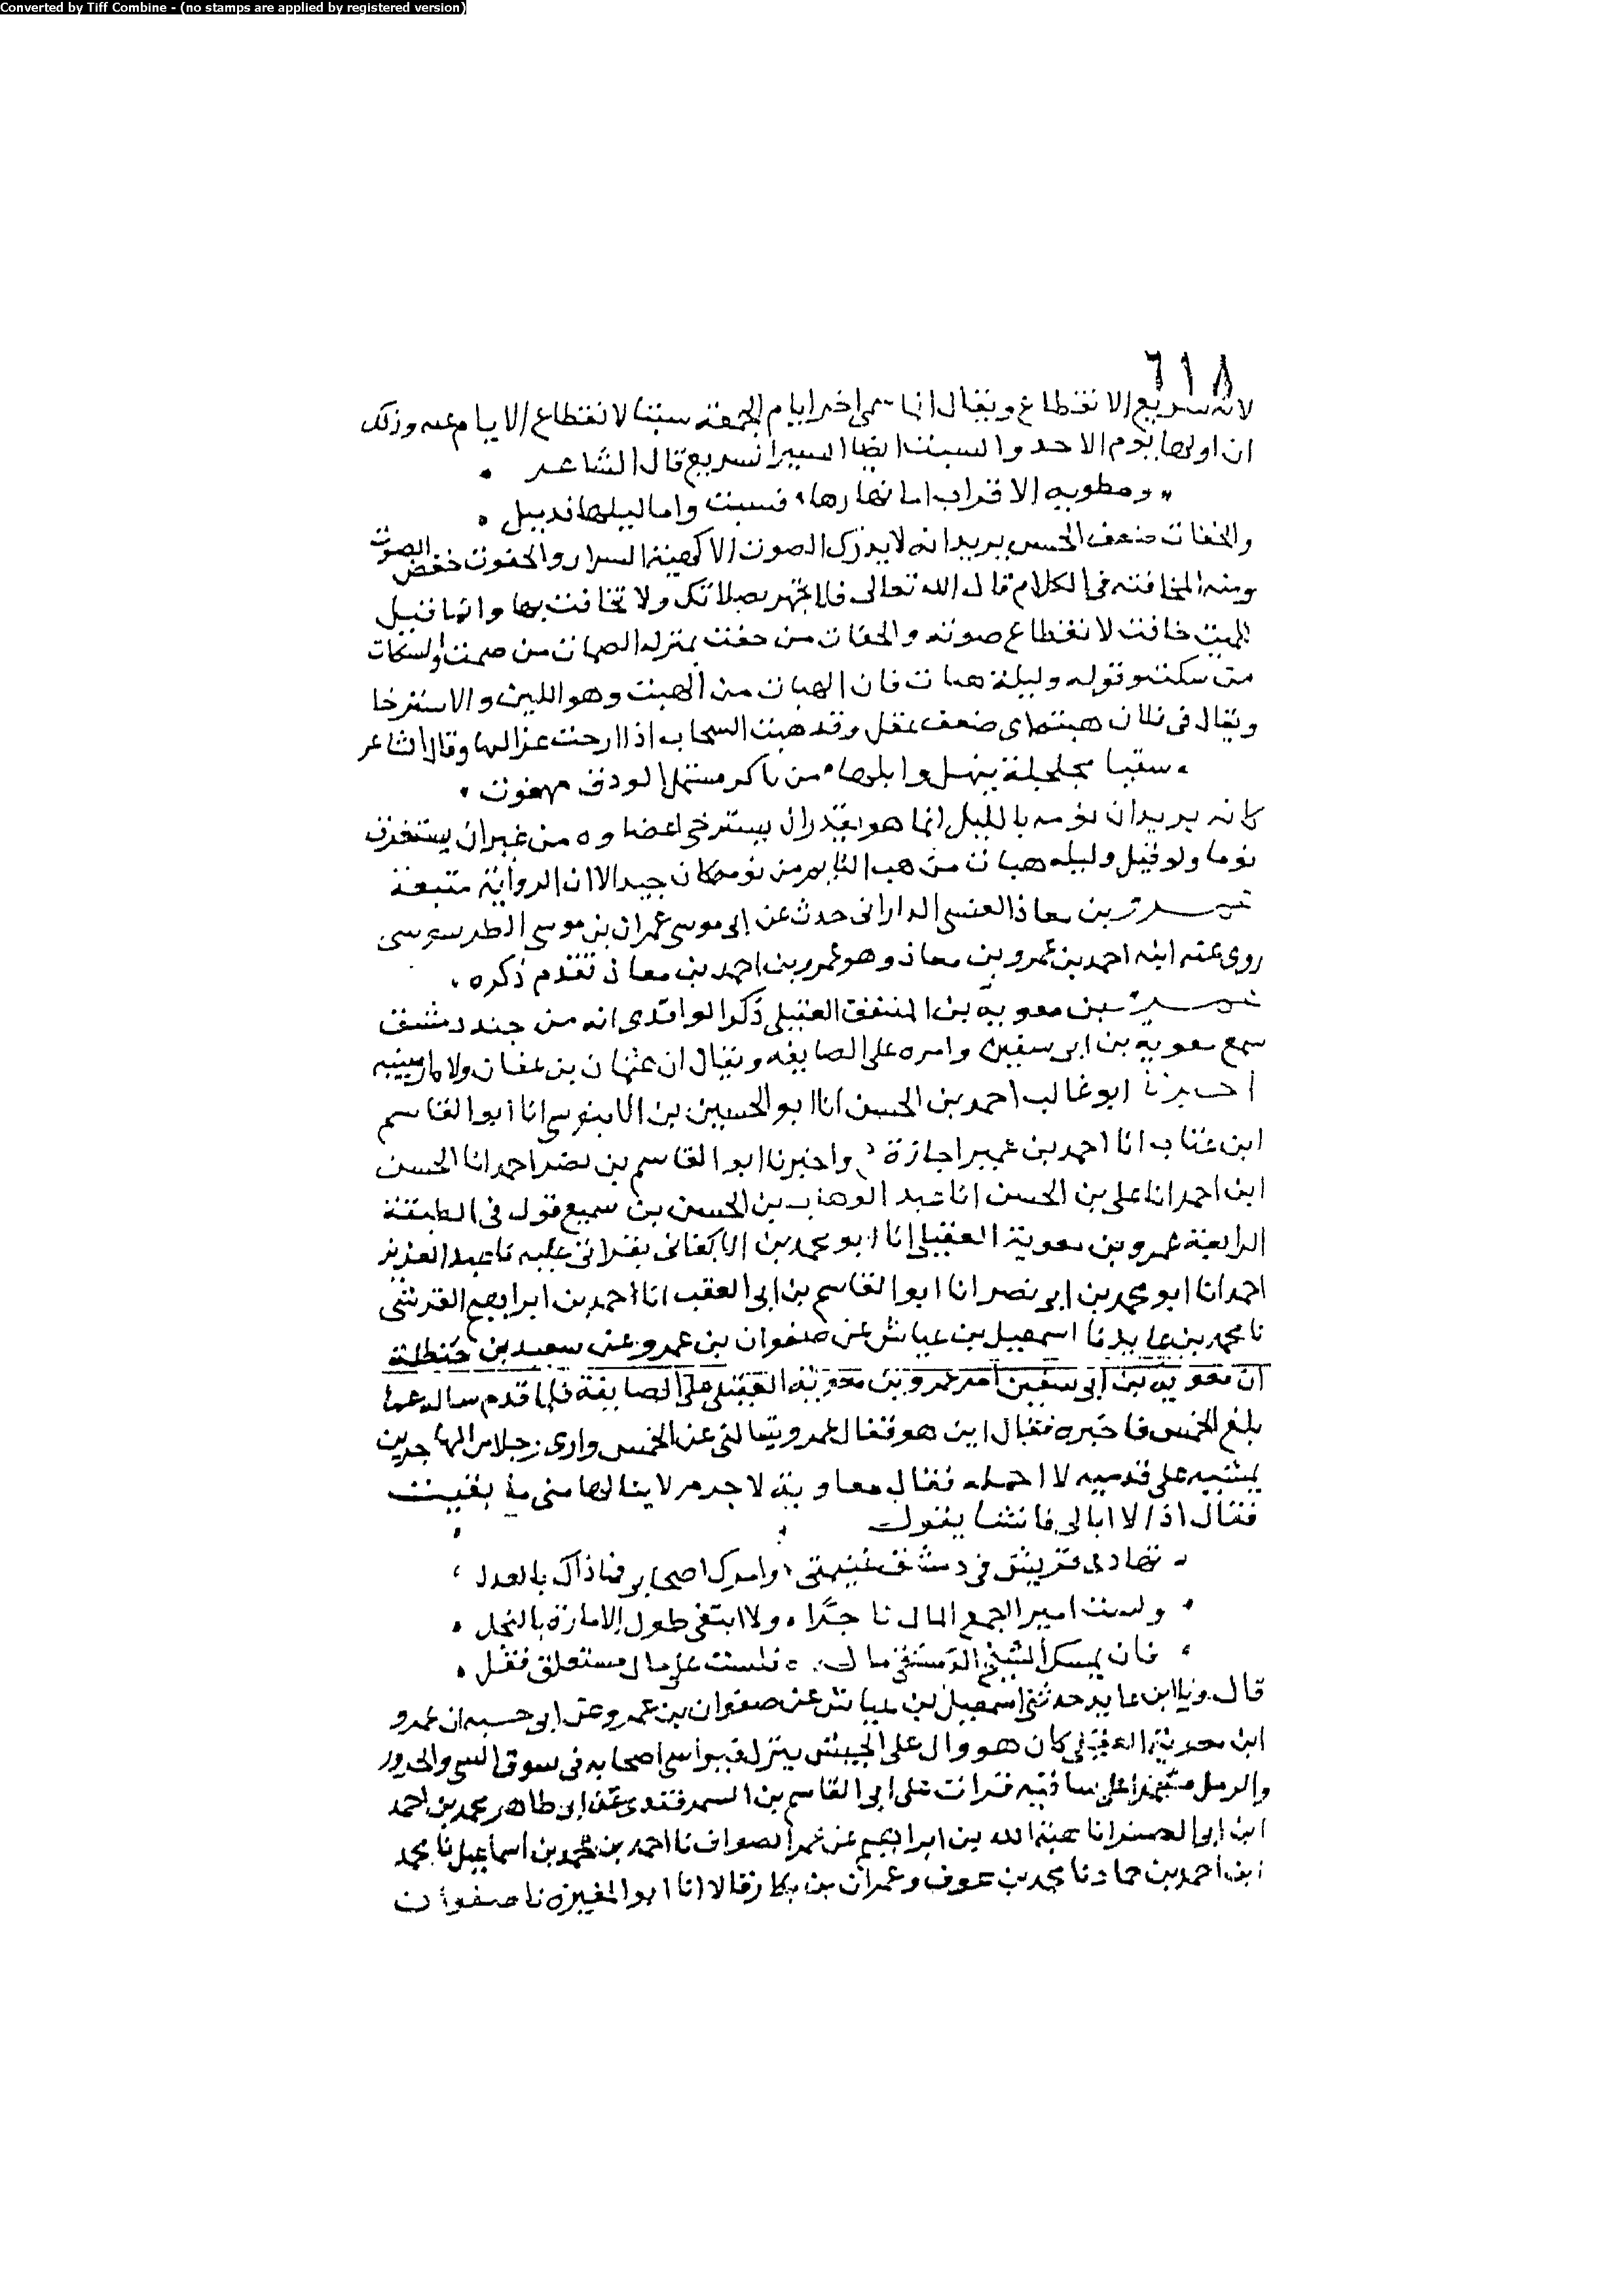 Converted by Tiff Combine - (no stamps are applied by registered version)
٦١٨
لانه سريع الانقطاع ويقال انما سمى اخر ايام الجمعة سبتا لانقطاع الايام عنه وذلك
ان اولها يوم الاحد والسبت ايضا السير السريع قال الشاعر
ومطويه الاقراب اما نهارها فسبت واما ليلها فذميل
والخفات ضعف الحس يريد انه لا يدرك الصوت الا كهيئة السرار والخفوت خفض الصوت
ومنه المخافته فى الكلام قال الله تعالى فلا تجهر بصلاتك ولا تخافت بها وانما قيل
للميت خافت لانقطاع صوته والخفات من خفت بمنزله الصمات من صمت والسكات
من سكت وقوله وليلة هبات فان الهبات من الهبت وهو اللين والاسترخا
ويقال فى فلان هبتة اى ضعف عقل وقد هبت السحاب اذا ارخت عزاليها وقال الشاعر
سقيا مجلجلة ينهل وابلها من باكر مستهل الودق مهفوت
كانه يريد ان نومه بالليل انما هو بقدر ان يسترخى اعضاوه من غير ان يستغرق
نوما ولو قيل وليله هبات من هب النايم من نومه كان جيدا الا ان الرواية متبعة
عمرو بن معاذ العنسى الدارانى حدث عن ابى موسى عمران بن موسى الطرسوسى
روى عنه ابنه احمد بن عمرو بن معاذ وهو عمرو بن احمد بن معاذ تقدم ذكره
عمرو بن معوية بن المنتفق العقيلى ذكر الواقدى انه من جند دمشق
سمع معوية بن ابى سفين وامره على الصايفه ويقال ان عثمان بن عفان ولاه ارمينيه
اخبرنا ابو غالب احمد بن الحسن انا ابو الحسين بن الابنوسى انا ابو القاسم
ابن عتاب انا احمد بن عمير اجازة واخبرنا ابو القاسم بن نصر احمد انا الحسن
ابن احمد انا على بن الحسن انا عبد الوهاب بن الحسن بن سميع قول فى الطبقة
الرابعة عمرو بن معوية العقيلى انا ابو محمد بن الاكفانى بقراتى عليه نا عبد العزيز
احمد انا ابو محمد بن ابى نصر انا ابو القاسم بن ابى العقب انا احمد بن ابراهيم القرشى
نا محمد بن عايد نا اسمعيل بن عياش عن صفوان بن عمرو عن سعيد بن حنظلة
ان معوية بن ابى سفين امر عمرو بن معوية العقيلى على الصايفة فلما قدم ساله عما
بلغ الخمس فاخبره فقال اين هو فقال عمرو تسالنى عن الخمس وارى رجلا من المهاجرين
يمشى على قدميه لا احمله فقال معاوية لا جرم لا ينالها منى ما بقيت
فقال اذا لا ابالى فانشا يقول
تهادى قريش فى دمشق غنيمتى واترك اصحابى فما ذاك بالعدل
ولست اميرا اجمع المال تاجرا ولا ابتغى طول الامارة بالبخل
فان يمسك الشيخ الدمشقى ماله فلست على مال بمستغلق قفل
قال ونا ابن عايد حدثنى اسمعيل بن عياش عن صفوان بن عمرو عن ابى حسبه ان عمرو
ابن معوية العقيلى كان هو وال على الجيش ينزل فيواسى اصحابه فى سوق السبى والجزور
والرمل مشمرا على ساقيه قرات على ابى القاسم بن السمرقندى عن ابى طاهر محمد بن احمد
ابن ابى الصقر انا هبة الله بن ابراهيم عن عمر الصواف نا احمد بن محمد بن اسماعيل نا محمد
ابن احمد بن حماد نا محمد بن عوف وعمران بن بكار قالا انا ابو المغيرة نا صفوان